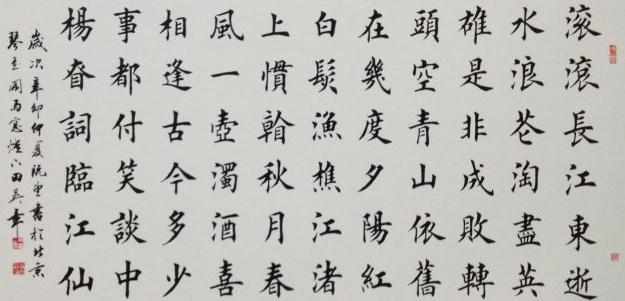 滾滾長江東逝
水浪花淘盡英
雄是非成敗轉
頭空青山依舊
在幾度夕陽紅
白髮漁樵江渚
上慣看秋月春
風一壺濁酒喜
相逢古今多少
事都付笑談中
楊昚詞臨江仙
歲次辛卯仲夏書於北京
田英章